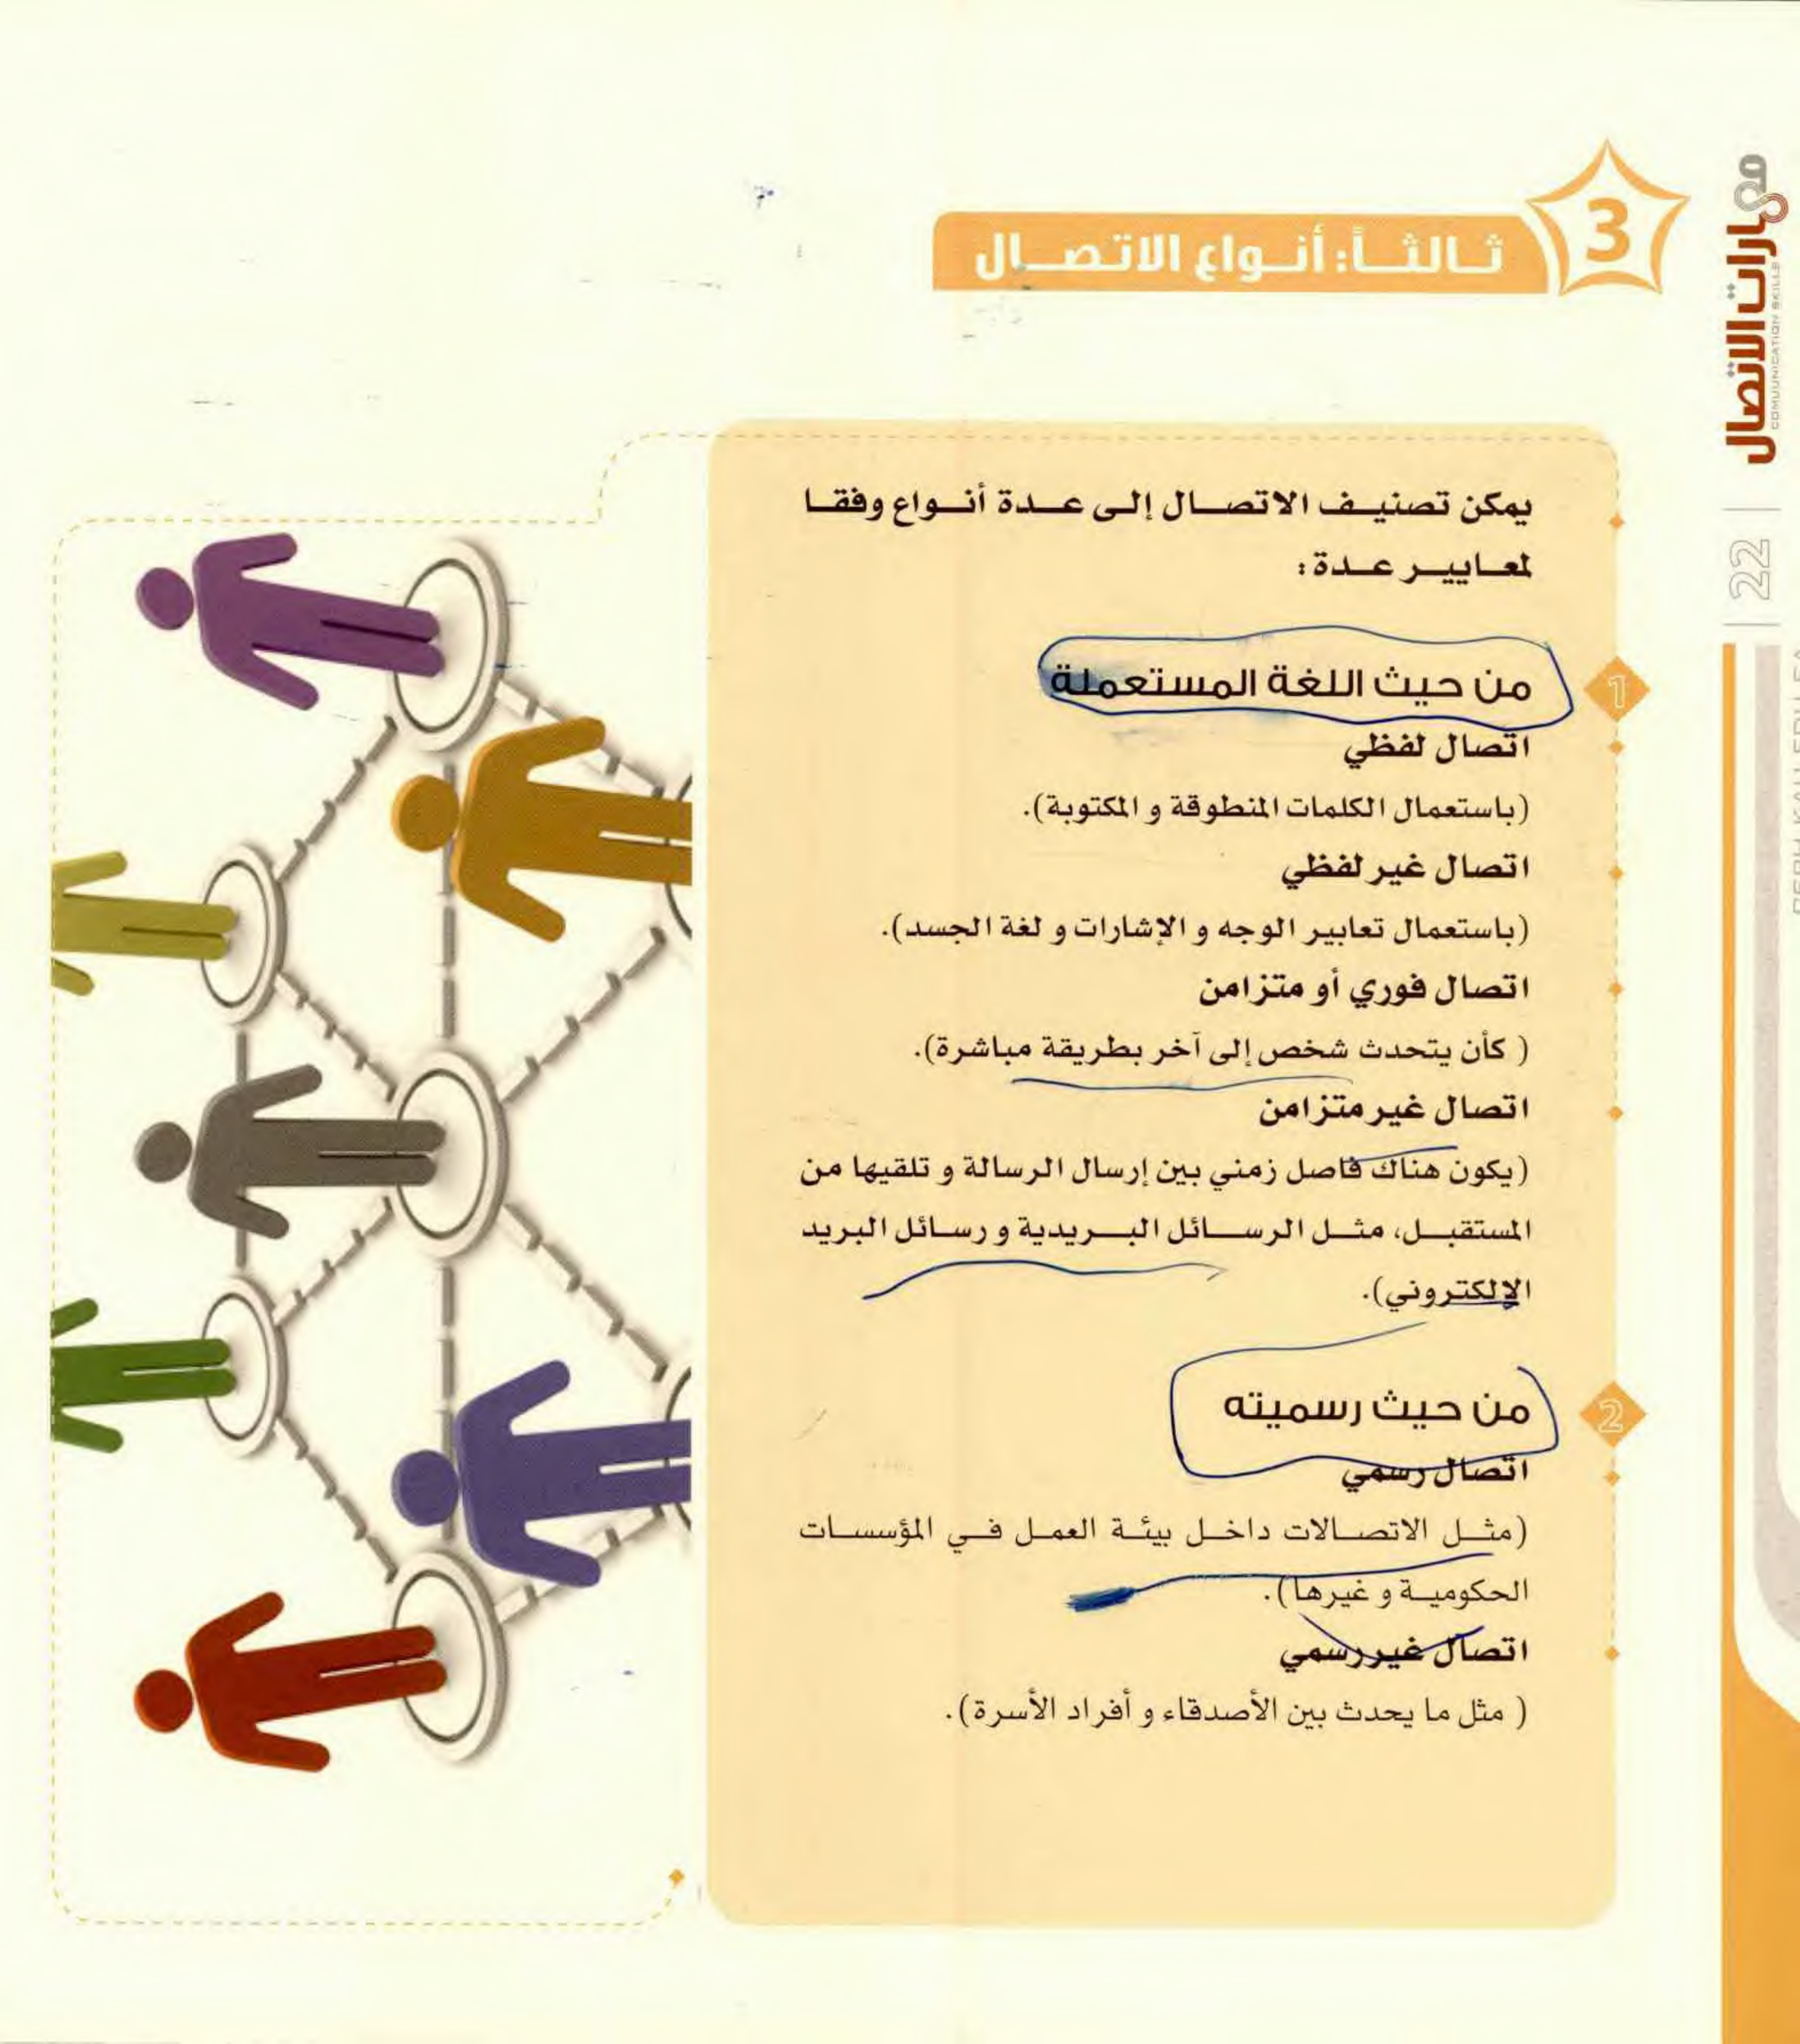 3
ثالثاً: أنواع الاتصال
مهارات الاتصال
COMUUNICATION SKILLS
22
يمكن تصنيف الاتصال إلى عدة أنواع وفقا
لمعايير عدة:
1
من حيث اللغة المستعملة
اتصال لفظي
(باستعمال الكلمات المنطوقة و المكتوبة).
اتصال غير لفظي
(باستعمال تعابير الوجه و الإشارات و لغة الجسد).
اتصال فوري أو متزامن
( كأن يتحدث شخص إلى آخر بطريقة مباشرة).
اتصال غير متزامن
(يكون هناك فاصل زمني بين إرسال الرسالة و تلقيها من
المستقبل، مثل الرسائل البريدية و رسائل البريد
الإلكتروني).
2
من حيث رسميته
اتصال رسمي
(مثل الاتصالات داخل بيئة العمل في المؤسسات
الحكومية و غيرها).
اتصال غير رسمي
( مثل ما يحدث بين الأصدقاء و أفراد الأسرة).